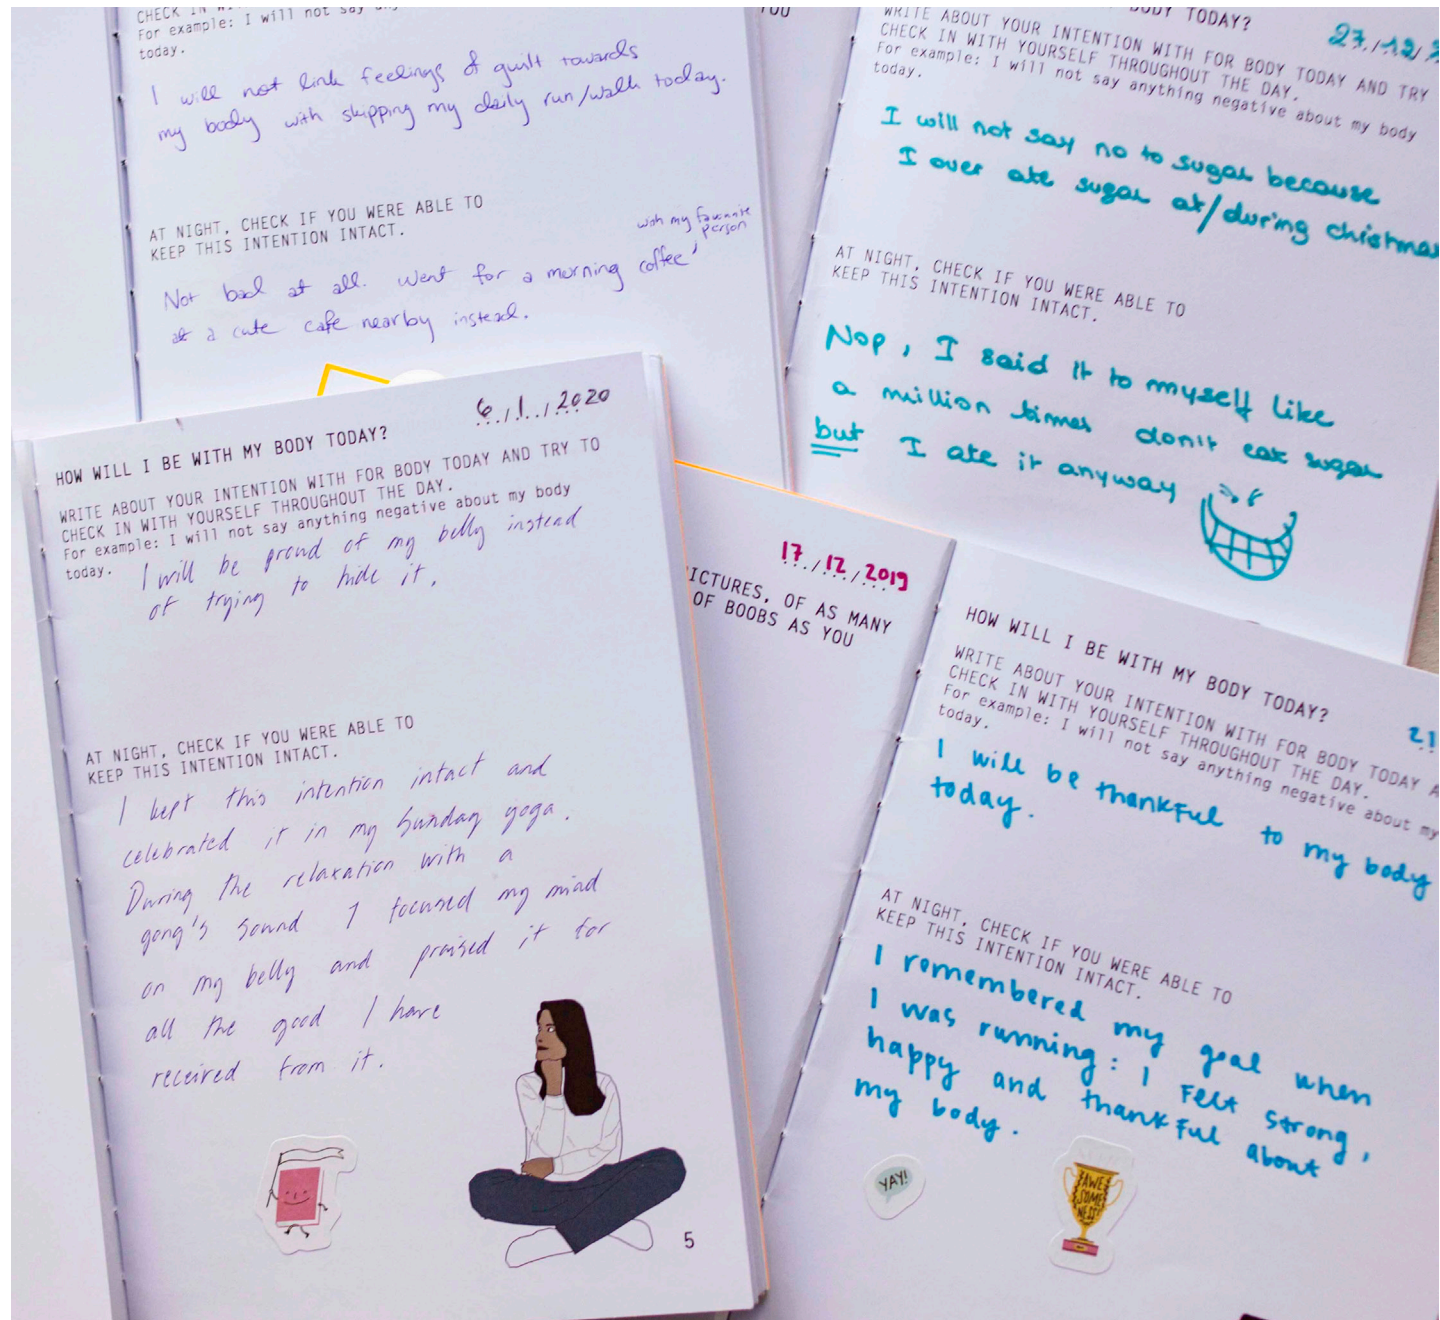 CHECK IN
For example: I will not say
today.
I will not link feelings of guilt towards
my body with skipping my daily run/walk today.
AT NIGHT, CHECK IF YOU WERE ABLE TO
KEEP THIS INTENTION INTACT.
with my favourite
person
Not bad at all. Went for a morning coffee
at a cute cafe nearby instead.
YOU
BODY TODAY?
27./.12/
WRITE ABOUT YOUR INTENTION WITH FOR BODY TODAY AND TRY
CHECK IN WITH YOURSELF THROUGHOUT THE DAY.
For example: I will not say anything negative about my body
today.
I will not say no to sugar because
I over ate sugar at/during christmas
AT NIGHT, CHECK IF YOU WERE ABLE TO
KEEP THIS INTENTION INTACT.
Nop, I said it to myself like
a million times don't eat sugar
but I ate it anyway
6./.1../.2020
HOW WILL I BE WITH MY BODY TODAY?
WRITE ABOUT YOUR INTENTION WITH FOR BODY TODAY AND TRY TO
CHECK IN WITH YOURSELF THROUGHOUT THE DAY.
For example: I will not say anything negative about my body
today.
I will be proud of my belly instead
of trying to hide it.
AT NIGHT, CHECK IF YOU WERE ABLE TO
KEEP THIS INTENTION INTACT.
I kept this intention intact and
celebrated it in my Sunday yoga.
During the relaxation with a
gong's sound I focused my mind
on my belly and praised it for
all the good I have
received from it.
5
17./.12./.2019
ICTURES, OF AS MANY
OF BOOBS AS YOU
HOW WILL I BE WITH MY BODY TODAY?
21
WRITE ABOUT YOUR INTENTION WITH FOR BODY TODAY A
CHECK IN WITH YOURSELF THROUGHOUT THE DAY.
For example: I will not say anything negative about my
today.
I will be thankful to my body
today.
AT NIGHT, CHECK IF YOU WERE ABLE TO
KEEP THIS INTENTION INTACT.
I remembered my goal when
I was running: I felt strong,
happy and thankful about
my body.
YAY!
AWE
SOME
NESS!